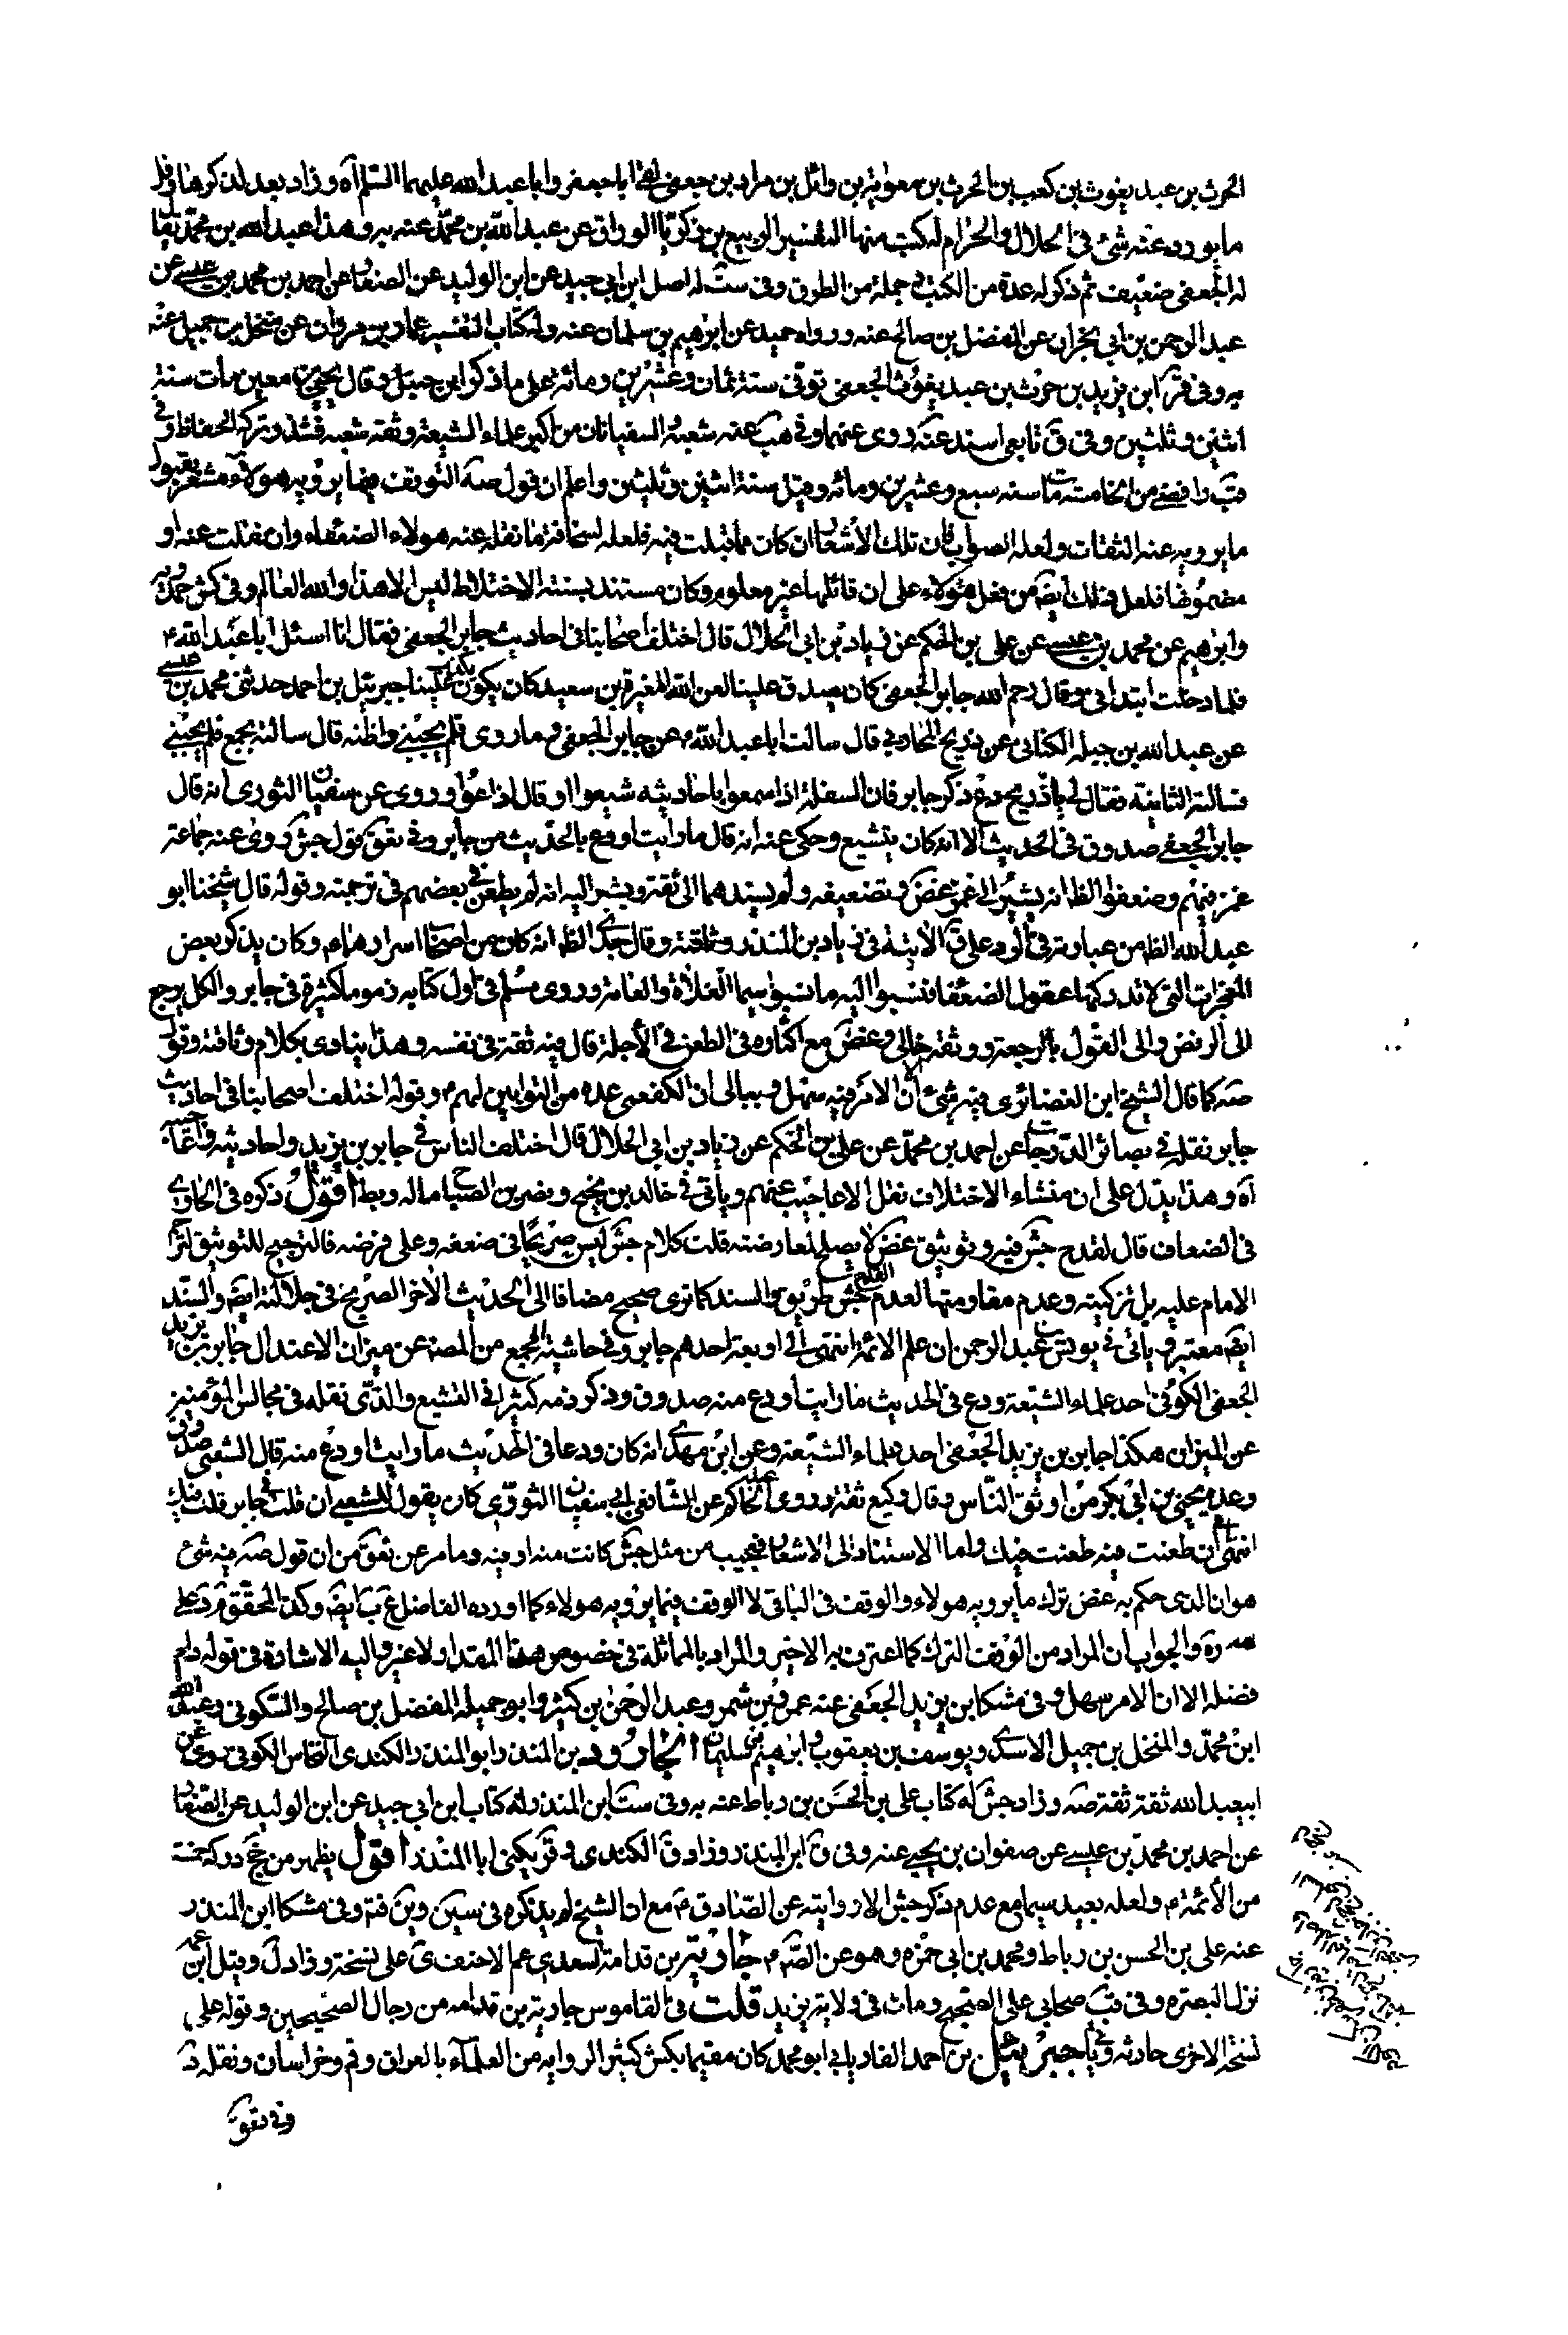 الحرث بن عبد يغوث بن كعب بن الحرث بن معوية بن وائل بن مرار بن جعفى لقى ابا جعفر وابا عبد الله عليهما السلم آه وزاد بعد لذكرها وقل
ما يورد عنه شئ فى الحلال والحرام له كتب منها التفسير الربيع بن زكريا الوراق عن عبد الله بن محمد عنه به وهذا عبد الله بن محمد يقا
له الجعفى ضعيف ثم ذكر له عدة من الكتب فى جملة من الطرق وفى ست له اصل ابن ابى جيد عن ابن الوليد عن الصفا عن احمد بن محمد بن عيسى عن
عبد الرحمن بن ابى نجران عن المفضل بن صالح عنه ورواه حميد عن ابرهيم بن سلمان عنه وله كتاب التفسير عمار بن مروان عن منخل بن جميل عنه
به وفى قر ابن يزيد بن حرث بن عبد يغوث الجعفى توفى سنة ثمان وعشرين ومائة على ما ذكر ابن حنبل وقال يحيى بن معين مات سنة
اثنتين وثلثين وفى ق تابعى اسند عنه روى عنهما وفى هب عنه شعبة والسفيانان من اكبر علماء الشيعة وثقه شعبه فشذ وتركه الحفاظ وفى
قب رافضى من الخامسة مات سنه سبع وعشرين ومائه وقيل سنة اثنين وثلثين واعلم ان قول صه التوقف فيما يرويه هولاء مشعر بقبول
ما يرويه عنه الثقات ولعله الصواب فان تلك الاشعار ان كان مما قبلت فيه فلعله لسخافة ما نقله عنه هولاء الضعفاء وان نقلت عنه او
مضمونها فلعل ذلك ايضا من فعل هؤلاء على ان قائلها غير معلوم وكان مستند نسبته الاختلاط ليس الا هذا والله العالم وفى كش حمدويه
وابرهيم عن محمد بن عيسى عن على بن الحكم عن زياد بن ابى الحلال قال اختلف اصحابنا فى احاديث جابر الجعفى فقال انا اسئل ابا عبد الله ع
فلما دخلت ابتدانى وقال رحم الله جابر الجعفى كان يصدق علينا لعن الله المغيرة بن سعيد كان يكذب علينا جبرئيل بن احمد حدثنى محمد بن عيسى
عن عبد الله بن جبله الكنانى عن ذريح المحاربى قال سالت ابا عبد الله ع عن جابر الجعفى وما روى فلم يجبنى واظنه قال سالته بجمع فلم يجبنى
فسالته الثانية فقال لى يا ذريح دع ذكر جابر فان السفلة اذا سمعوا باحاديثه شيعوا او قال اذاعوا وروى عن سفيان الثورى انه قال
جابر الجعفى صدوق فى الحديث الا انه كان يتشيع وحكى عنه انه قال ما رايت اورع بالحديث من جابر وفى تعق قول جش روى عنه جماعة
غمز فيهم وضعفوا الظ انه يشير الى غمز غض و تضعيفه ولم يسندهما الى ثقة ويشير اليه انه لم يطعن فى بعضهم فى ترجمته وقوله قال شيخنا ابو
عبد الله الظ من عبارته فى الرد على ق الاتية فى زياد بن المنذر وثاقته وقال جدى الظ انه كان من اصحاب اسرارهما ع وكان يذكر بعض
المعجزات التى لا تدركها عقول الضعفا فنسبوا اليه ما نسبوا سيما الغلاة والعامة وروى مسلم فى اول كتابه ذموما كثيرة فى جابر والكل يرجع
الى الرفض والى القول بالرجعة ووثقه خالى وغض مع اكثاره فى الطعن فى الاجلة قال فيه ثقة فى نفسه وهذا ينادى بكلام وثاقته وقول
صه كما قال الشيخ ابن الغضائرى فيه شئ الا ان الامر فيه سهل وببالى ان الكفعمى عده من البوابين لهم ع وقوله اختلف اصحابنا فى احاديث
جابر نقله فى بصائر الدرجات عن احمد بن محمد عن على بن الحكم عن زياد بن ابى الحلال قال اختلف الناس فى جابر بن يزيد واحاديثه
آه وهذا يدل على ان منشاء الاختلاف نقل الاعاجيب عنهم وياتى فى خالد بن نجيح ونصر بن الصباح ماله ربط اقول ذكره فى الحاوى
فى الضعاف قال لقدح جش فيه وتوثيق غض لا يصلح لمعارضته قلت كلام جش ليس صريحا فى ضعفه وعلى فرضه فالترجيح للتوثيق لترحم
الامام عليه بل تزكيته وعدم مقاومتها لعدم القدح جش طريق والسند كما ترى صحيح مضافا الى الحديث الاخر الصريح فى جلالته ايضا والسند
ايضا معتبر وياتى فى يونس بن عبد الرحمن ان علم الائمة انتهى الى اربعة احدهم جابر وفى حاشية المجمع من المصنف عن ميزان الاعتدال جابر بن يزيد
الجعفى الكوفى احد علماء الشيعة ورع فى الحديث ما رايت اورع منه صدوق وذكر ذمه كثيرا فى التشيع والذى نقله فى مجالس المؤمنين
عن الميزان هكذا جابر بن يزيد الجعفى احد علماء الشيعة وعن ابن مهدى انه كان ورعا فى الحديث ما رايت اورع منه قال الشعبى صدوق
وعده يحيى بن ابى بكر من اوثق الناس وقال وكيع ثقة وروى الحاكم عن الشافعى ان سفيان الثورى كان يقول للشعبى ان قلت فى جابر قلت فيك
انتهى ان طعنت فيه طعنت فيك واما الاستناد الى الاشعار فعجيب من مثل جش كانت منه او فيه وما مر عن تعق من ان قول صه فيه شئ
هو ان الذى حكم به غض ترك ما يرويه هولاء والوقف فى الباقى لا الوقف فيما يرويه هولاء كما اورده الفاضل ع ب ايضا وكذا المحقق م د على
صه ره والجواب ان المراد من الوقف الترك كما اعترف به الاخير والمراد بالمماثلة فى خصوص هذا المقدار لا غير واليه الاشارة فى قوله دام
فضله الا ان الامر سهل وفى مشكا ابن يزيد الجعفى عنه عمرو بن شمر وعبد الرحمن بن كثير وابو جميله المفضل بن صالح والسكونى وعبد الله
ابن محمد والمنخل بن جميل الاسدى ويوسف بن يعقوب وابرهيم بن سليمان الجارود بن المنذر ابو المنذر الكندى النخاس الكوفى روى عن
ابيعبد الله ثقة ثقة صه وزاد جش له كتاب على بن الحسن بن رباط عنه به وفى ست ابن المنذر له كتاب ابن ابى جيد عن ابن الوليد عن الصفار
عن احمد بن محمد بن عيسى عن صفوان بن يحيى عنه وفى ق ابن المنذر وزاد ق الكندى و قر يكنى ابا المنذر اقول يظهر من جخ دركه خمسة
من الائمة ع ولعله بعيد سيما مع عدم ذكر جش الا روايته عن الصادق ع مع ان الشيخ لم يذكره فى سين وين فتم وفى مشكا ابن المنذر
عنه على بن الحسن بن رباط ومحمد بن ابى حمزه وهو عن الص ع جارية بن قدامة السعدى عم الاحنف ى على نسخة وزاد ل وقيل ابن عمه
نزل البصره وفى قب صحابى على الصحيح ومات فى ولاية يزيد قلت فى القاموس جارية بن قدامه من رجال الصحيحين وقوله على
نسخة لاخرى حارثه وياتى جبرئيل بن احمد الفاريابى ابو محمد كان مقيما بكش كثير الروايه من العلماء بالعراق وقم وخراسان ونقله د
وفى تعق